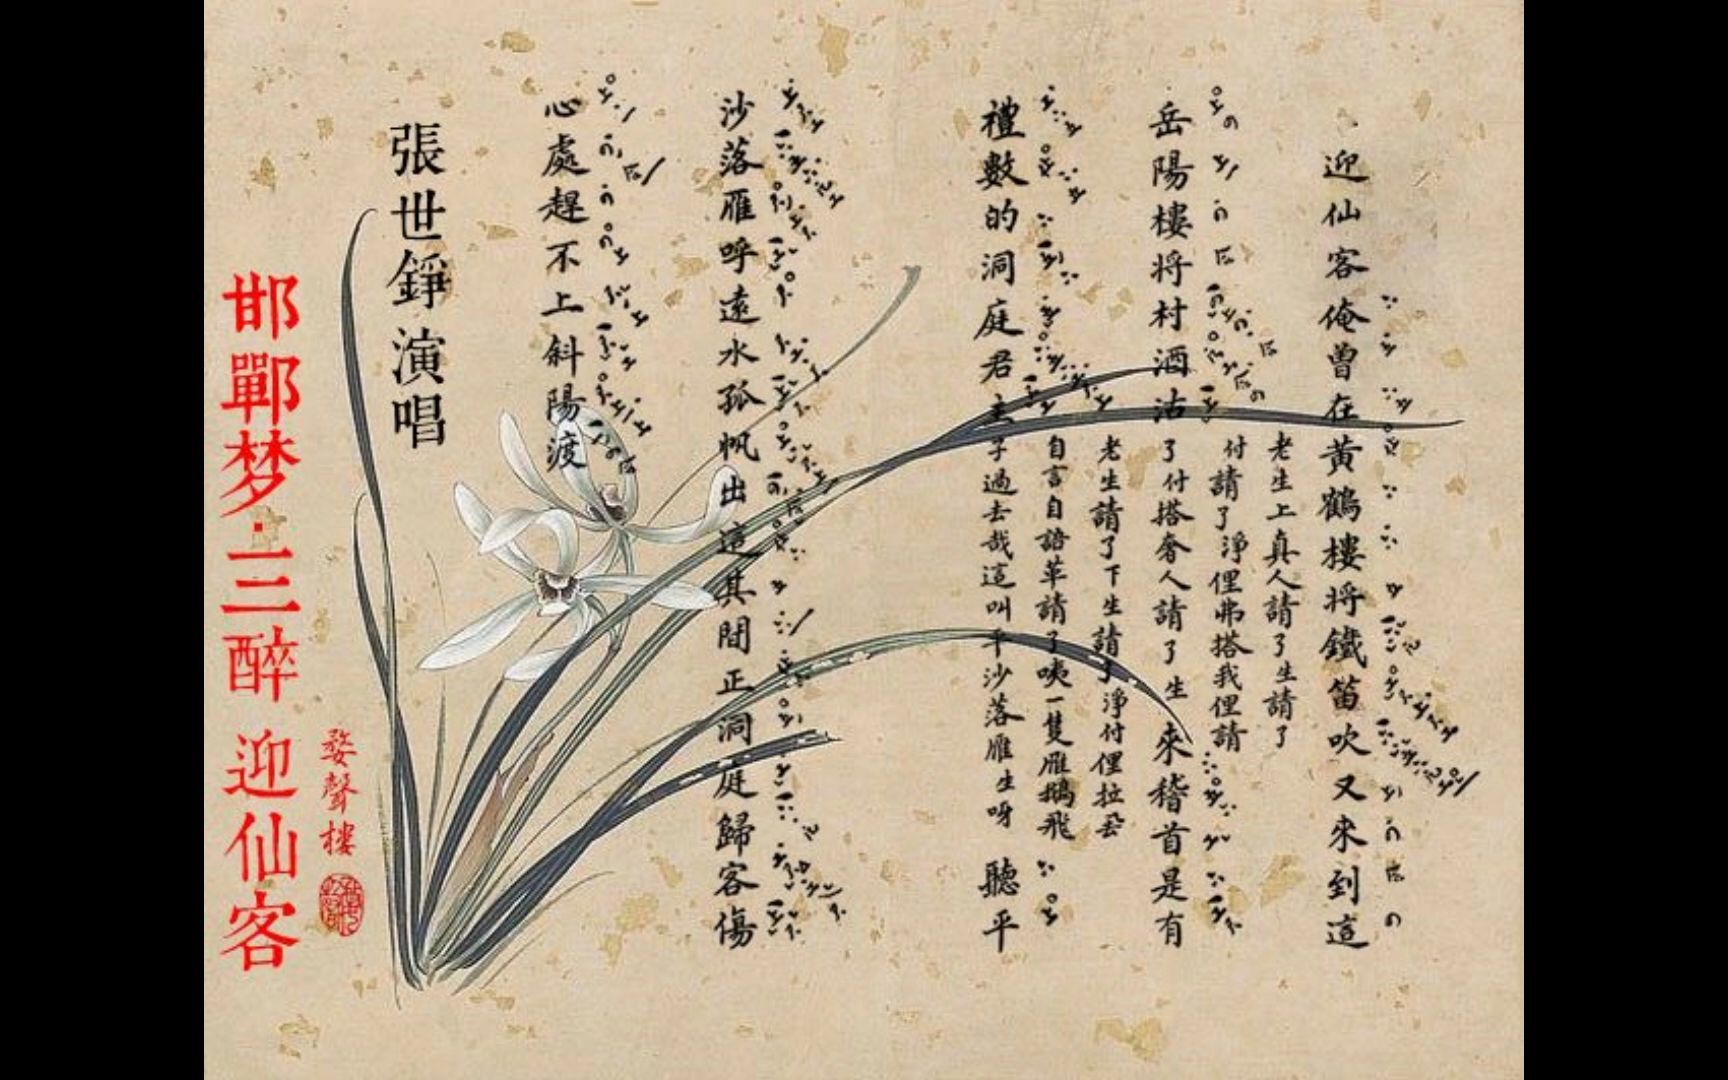 迎仙客俺曾在黃鶴樓将鐵笛吹又來到這
老生上真人請了生請了
付請了淨俚弗搭我俚請
岳陽樓将村酒沽
了付搭奢人請了生
來稽首是有
老生請了下生請了淨付俚拉
自言自語革請了咦一隻雁鵝飛
禮數的洞庭君主
子過去哉這叫平沙落雁生呀
聽平
沙落雁呼遠水孤帆出這其間正洞庭歸客傷
心處趕不上斜陽渡
張世錚演唱
婺聲樓
邯鄲梦·三醉 迎仙客